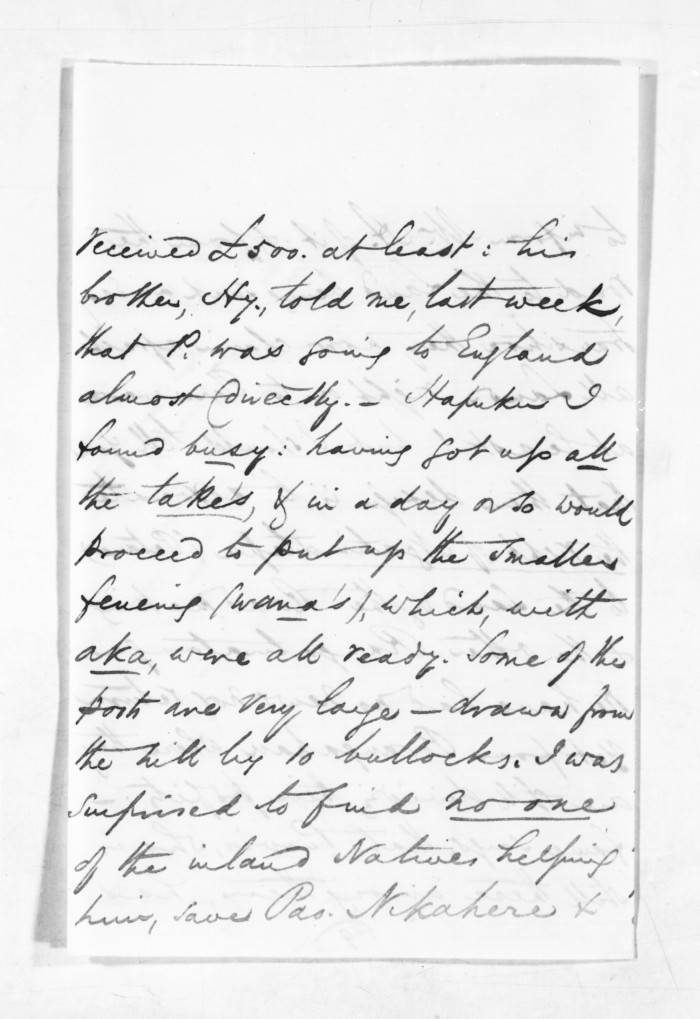 received £500. at least: his
brother, Hy., told me, last week,
that P. was going to England
almost directly. – Hapuku I
found busy: having got up all
the take's, & in a day or so would
proceed to put up the smaller
fencing (wana's), which, with
aka, were all ready. Some of the
posts are very large – drawn from
the hill by 10 bullocks. I was
surprised to find no one
of the inland Natives helping
him, save Pas. Nikahere &